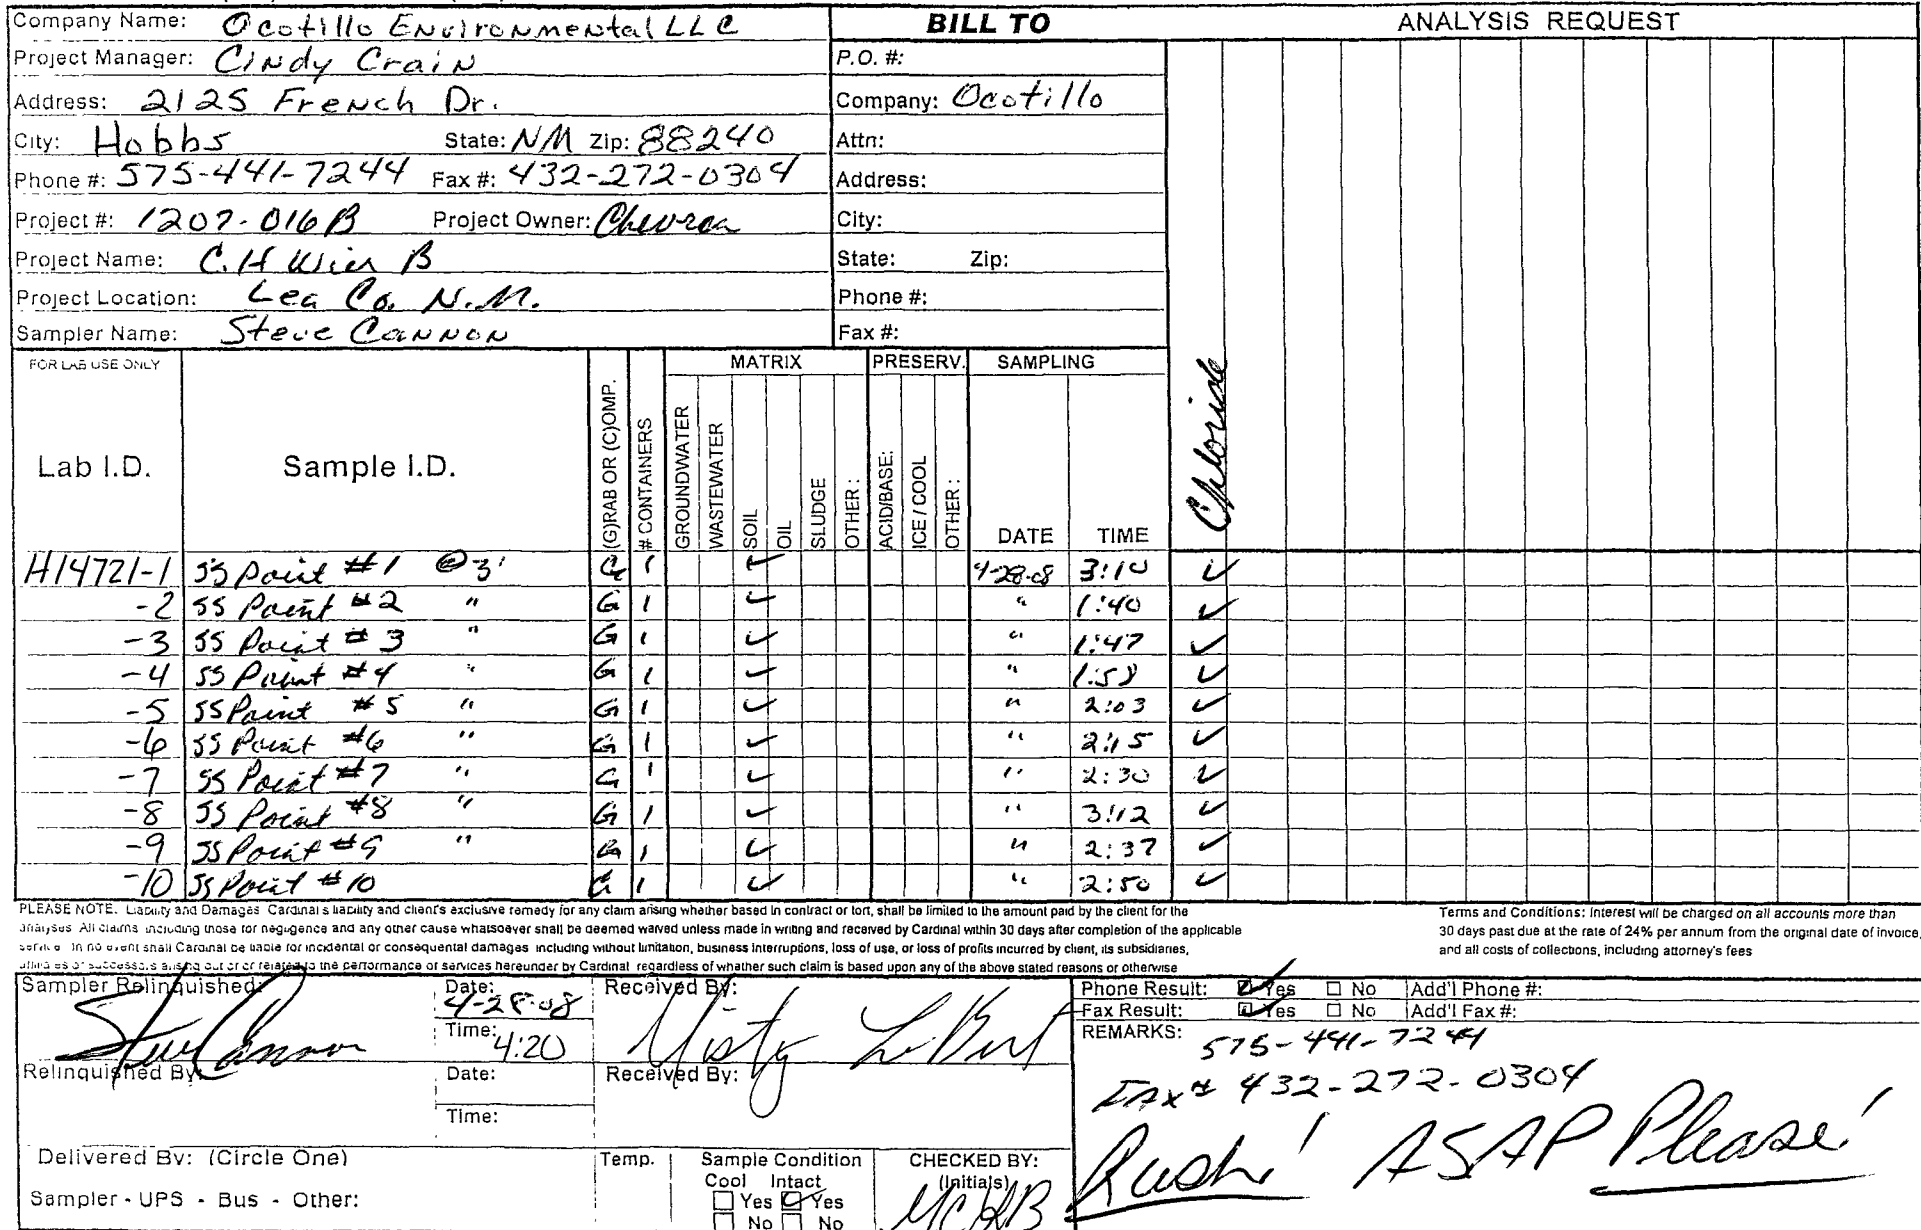 Company Name: Ocotillo Environmental LLC
BILL TO
ANALYSIS REQUEST
Project Manager: Cindy Crain
P.O. #:
Address: 2125 French Dr.
Company: Ocotillo
City: Hobbs State: NM Zip: 88240
Attn:
Phone #: 575-441-7244 Fax #: 432-272-0304
Address:
Project #: 1207-016B Project Owner: Chevron
City:
Project Name: C.H Wier B
State: Zip:
Project Location: Lea Co. N.M.
Phone #:
Sampler Name: Steve Cannon
Fax #:
FOR LAB USE ONLY
MATRIX PRESERV. SAMPLING
Lab I.D. Sample I.D. (G)RAB OR (C)OMP. # CONTAINERS GROUNDWATER WASTEWATER SOIL OIL SLUDGE OTHER : ACID/BASE: ICE / COOL OTHER : DATE TIME Chloride
H14721-1 SS Point #1 @3' G 1 ✓ 4-28-08 3:10 ✓
-2 SS Point #2 " G 1 ✓ " 1:40 ✓
-3 SS Point #3 " G 1 ✓ " 1:47 ✓
-4 SS Point #4 " G 1 ✓ " 1:58 ✓
-5 SS Point #5 " G 1 ✓ " 2:03 ✓
-6 SS Point #6 " G 1 ✓ " 2:15 ✓
-7 SS Point #7 " G 1 ✓ " 2:30 ✓
-8 SS Point #8 " G 1 ✓ " 3:12 ✓
-9 SS Point #9 " G 1 ✓ " 2:37 ✓
-10 SS Point #10 G 1 ✓ " 2:50 ✓
PLEASE NOTE. Liability and Damages Cardinal's liability and client's exclusive remedy for any claim arising whether based in contract or tort, shall be limited to the amount paid by the client for the
analyses All claims including those for negligence and any other cause whatsoever shall be deemed waived unless made in writing and received by Cardinal within 30 days after completion of the applicable
service In no event shall Cardinal be liable for incidental or consequental damages including without limitation, business interruptions, loss of use, or loss of profits incurred by client, its subsidiaries,
affiliates or successors arising out of or related to the performance of services hereunder by Cardinal regardless of whether such claim is based upon any of the above stated reasons or otherwise
Terms and Conditions: Interest will be charged on all accounts more than
30 days past due at the rate of 24% per annum from the original date of invoice,
and all costs of collections, including attorney's fees
Sampler Relinquished: Steve Cannon
Date: 4-28-08
Time: 4:20
Received By:
Relinquished By:
Date:
Time:
Received By:
Phone Result: ☑ Yes ☐ No Add'l Phone #:
Fax Result: ☑ Yes ☐ No Add'l Fax #:
REMARKS:
575-441-7244
Fax# 432-272-0304
Rush! ASAP Please!
Delivered By: (Circle One)
Sampler - UPS - Bus - Other:
Temp.
Sample Condition
Cool Intact
☐ Yes ☑ Yes
☐ No ☐ No
CHECKED BY:
(Initials)